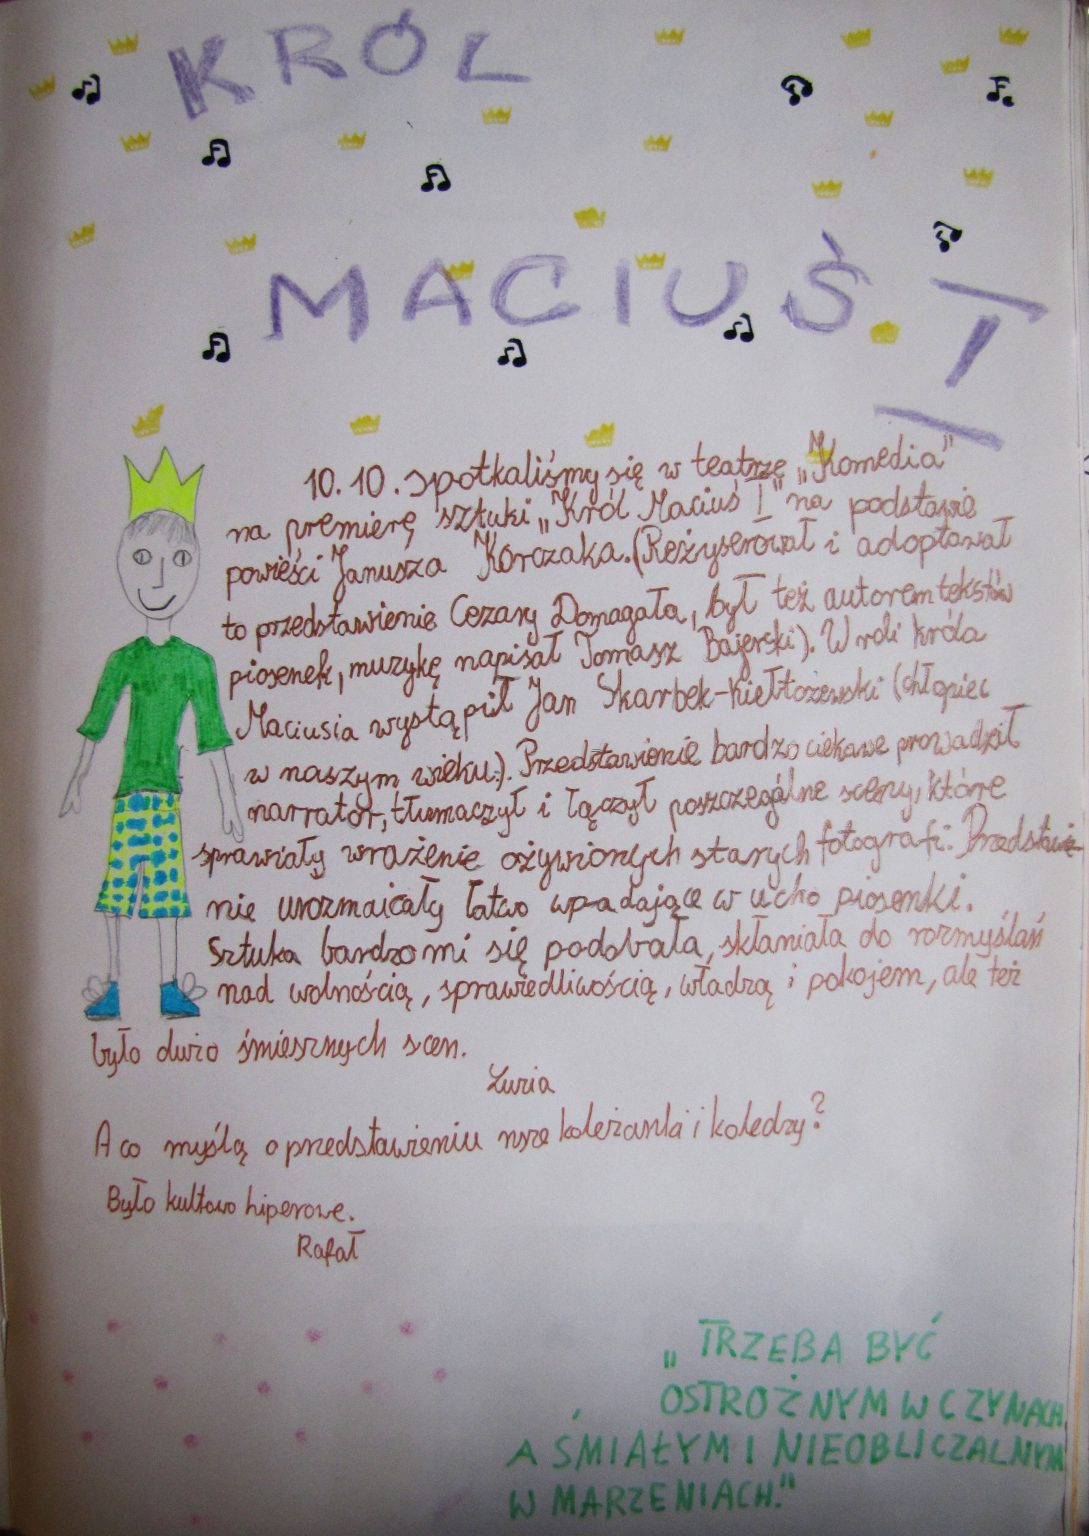 KRÓL
MACIUŚ I
10.10. spotkaliśmy się w teatrze „Komedia"
na premierę sztuki „Król Maciuś I" na podstawie
powieści Janusza Korczaka. (Reżyserował i adoptował
to przedstawienie Cezary Domagała, był też autorem tekstów
piosenek, muzykę napisał Tomasz Bajerski). W roli króla
Maciusia wystąpił Jan Skarbek-Kiełtożewski (chłopiec
w naszym wieku:). Przedstawienie bardzo ciekawe prowadził
narrator, tłumaczył i łączył poszczególne sceny, które
sprawiały wrażenie ożywionych starych fotografi: Przedstawie-
nie urozmaicały łatwo wpadające w ucho piosenki.
Sztuka bardzo mi się podobała, skłaniała do rozmyślań
nad wolnością, sprawiedliwością, władzą i pokojem, ale też
było dużo śmiesznych scen.
Zuzia
A co myślą o przedstawieniu nsze koleżanki i koledzy?
Było kultowo hiperowe.
Rafał
„TRZEBA BYĆ
OSTROŻNYM W CZYNACH,
A ŚMIAŁYM I NIEOBLICZALNYM
W MARZENIACH."